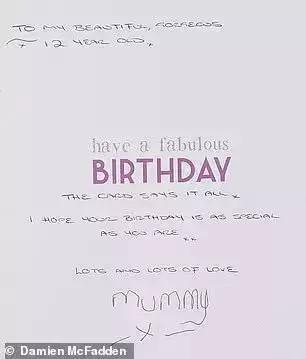 TO MY BEAUTIFUL, GORGEOUS
12 YEAR OLD x
have a fabulous
BIRTHDAY
THE CARD SAYS IT ALL x
I HOPE YOUR BIRTHDAY IS AS SPECIAL
AS YOU ARE xx
LOTS AND LOTS OF LOVE
MUMMY
x
© Damien McFadden